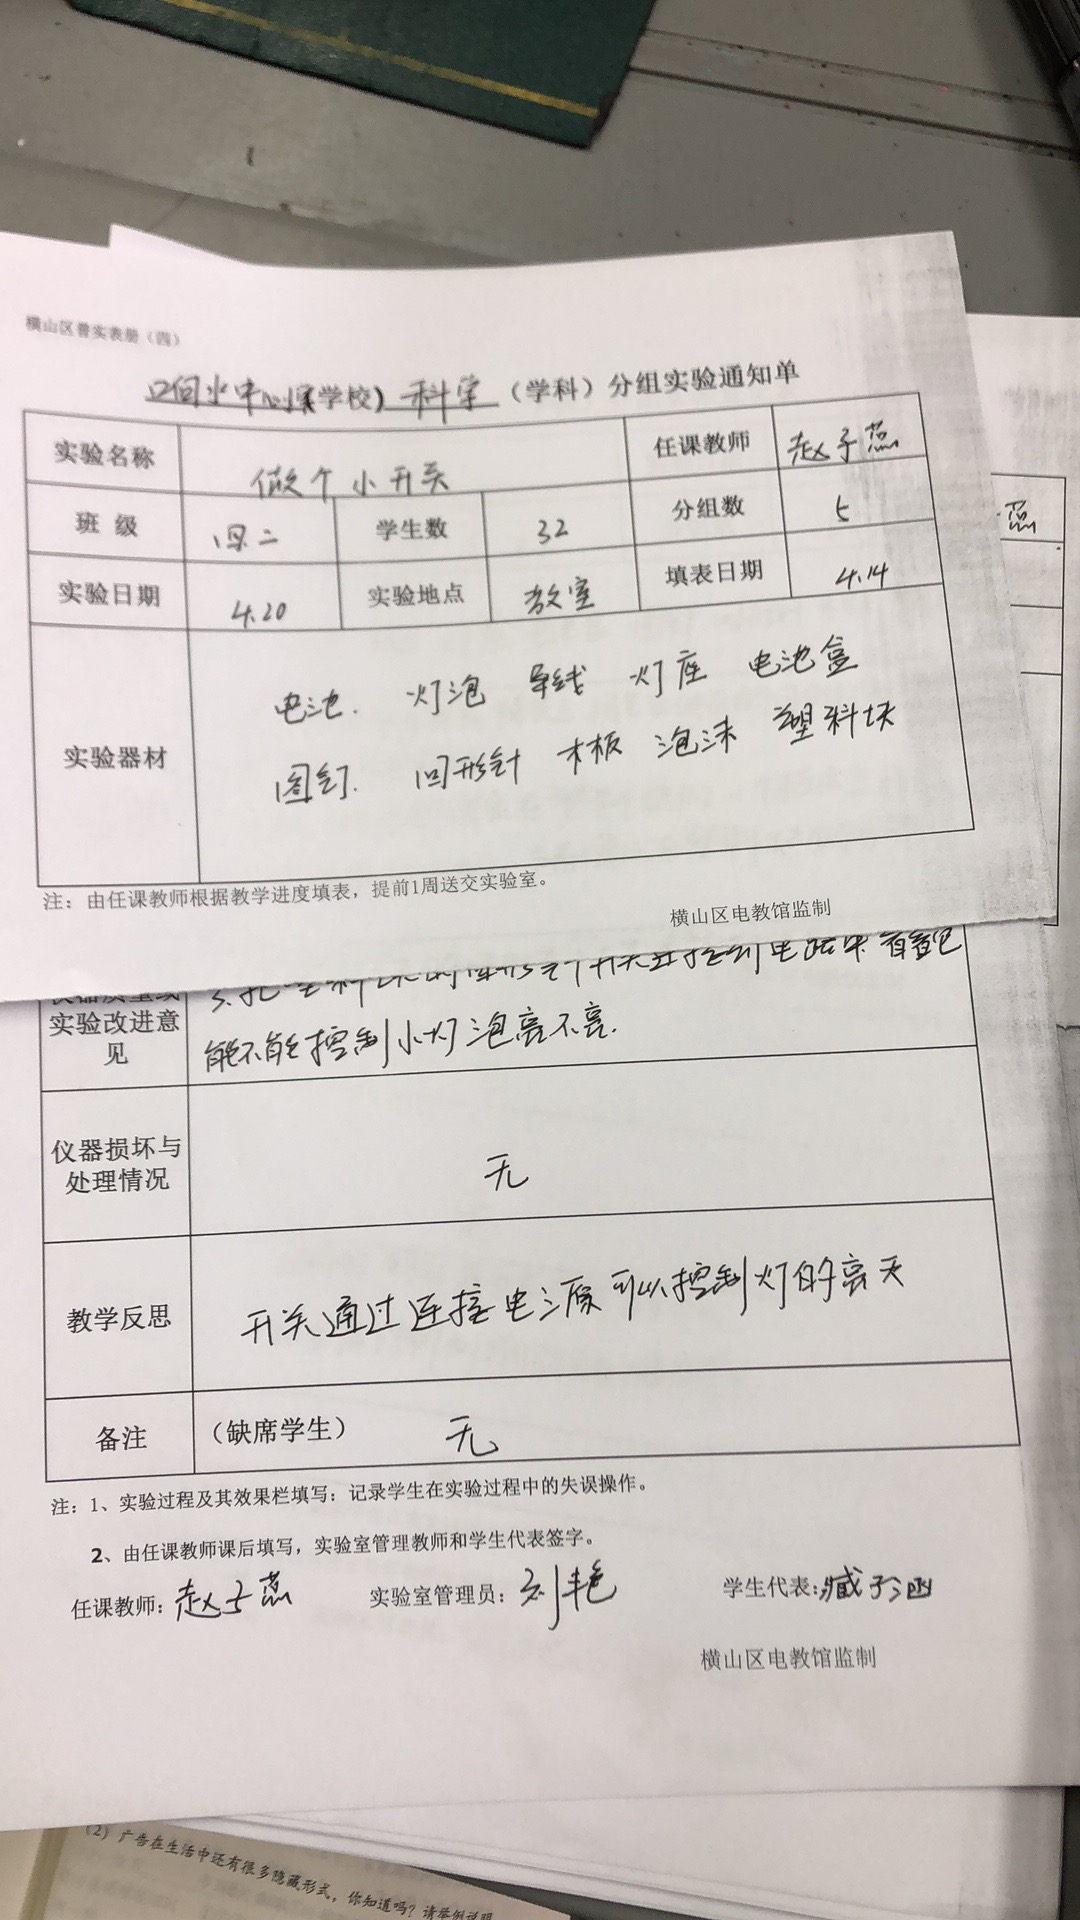 横山区普实表册（四）
学校）科学（学科）分组实验通知单
实验名称 做个小开关 任课教师 赵子燕
班 级 四二 学生数 32 分组数 5
实验日期 4.20 实验地点 教室 填表日期 4.14
实验器材 电池. 灯泡 导线 灯座 电池盒
图钉. 回形针 木板 泡沫 塑料块
注：由任课教师根据教学进度填表，提前1周送交实验室。
横山区电教馆监制
实验改进意
见 能不能控制小灯泡亮不亮.
仪器损坏与
处理情况 无
教学反思 开关通过连接电源可以控制灯的亮灭
备注 （缺席学生） 无
注：1、实验过程及其效果栏填写：记录学生在实验过程中的失误操作。
2、由任课教师课后填写，实验室管理教师和学生代表签字。
任课教师: 赵子燕 实验室管理员: 刘艳 学生代表: 臧子涵
横山区电教馆监制
（2）广告在生活中还有很多隐藏形式，你知道吗？请举例说明